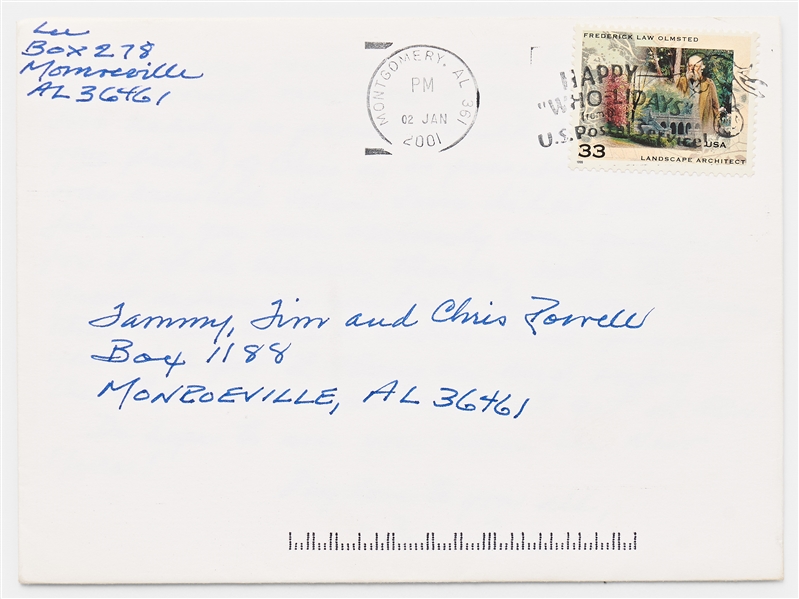 Lee
Box 278
Monroeville
AL 36461
MONTGOMERY, AL 361
PM
02 JAN
2001
HAPPY
"WHO-LIDAYS"
from the
U.S. Postal Service!
FREDERICK LAW OLMSTED
33
USA
LANDSCAPE ARCHITECT
Tammy, Tim and Chris Powell
Box 1188
MONROEVILLE, AL 36461